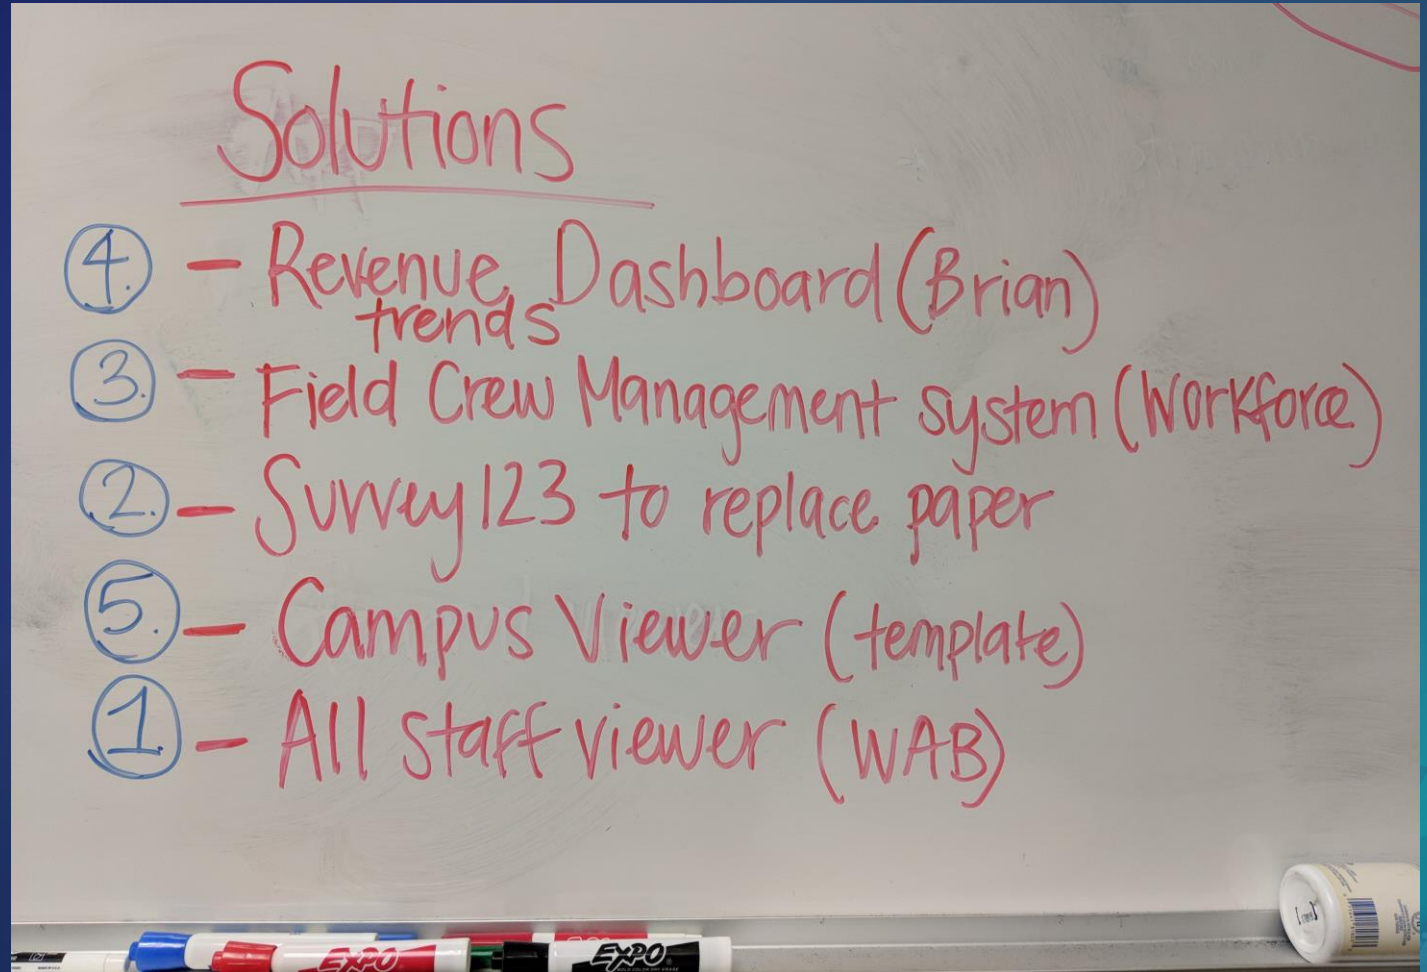 Solutions
4. - Revenue Dashboard (Brian)
trends
3. - Field Crew Management system (Workforce)
2. - Survey123 to replace paper
5. - Campus Viewer (template)
1. - All staff viewer (WAB)
EXPO
EXPO